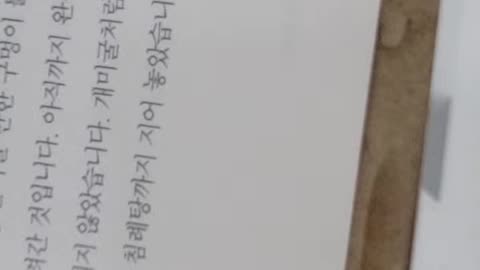 구멍이
간 것입니다. 아직까지 완
지 않았습니다. 개미굴처럼
침례탕까지 지어 놓았습니